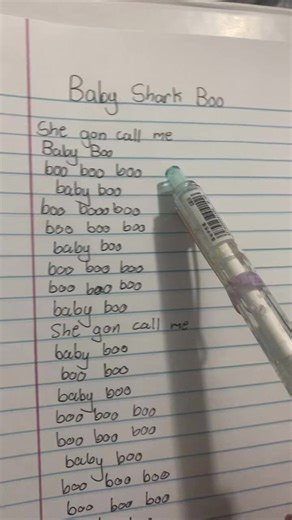 Baby Shark Boo
She gon call me
Baby Boo
boo boo boo
baby boo
boo boo boo
boo boo boo
baby boo
boo boo boo
boo boo boo
baby boo
She gon call me
baby boo
boo boo
baby boo
boo boo boo
boo boo boo
baby boo
boo boo boo
boo boo boo